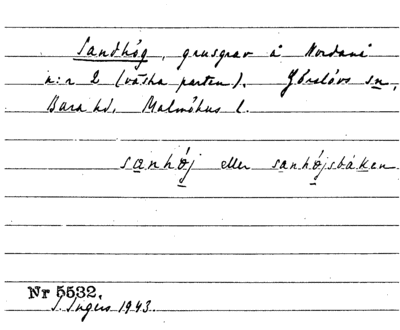 Sandhög, grusgrav å Nordanå
n:r 2 (västra parten). Görslövs sn,
Bara hd, Malmöhus l.
sanhöj eller sanhöjsbaken
Nr 5532.
I. Ingers 1943.